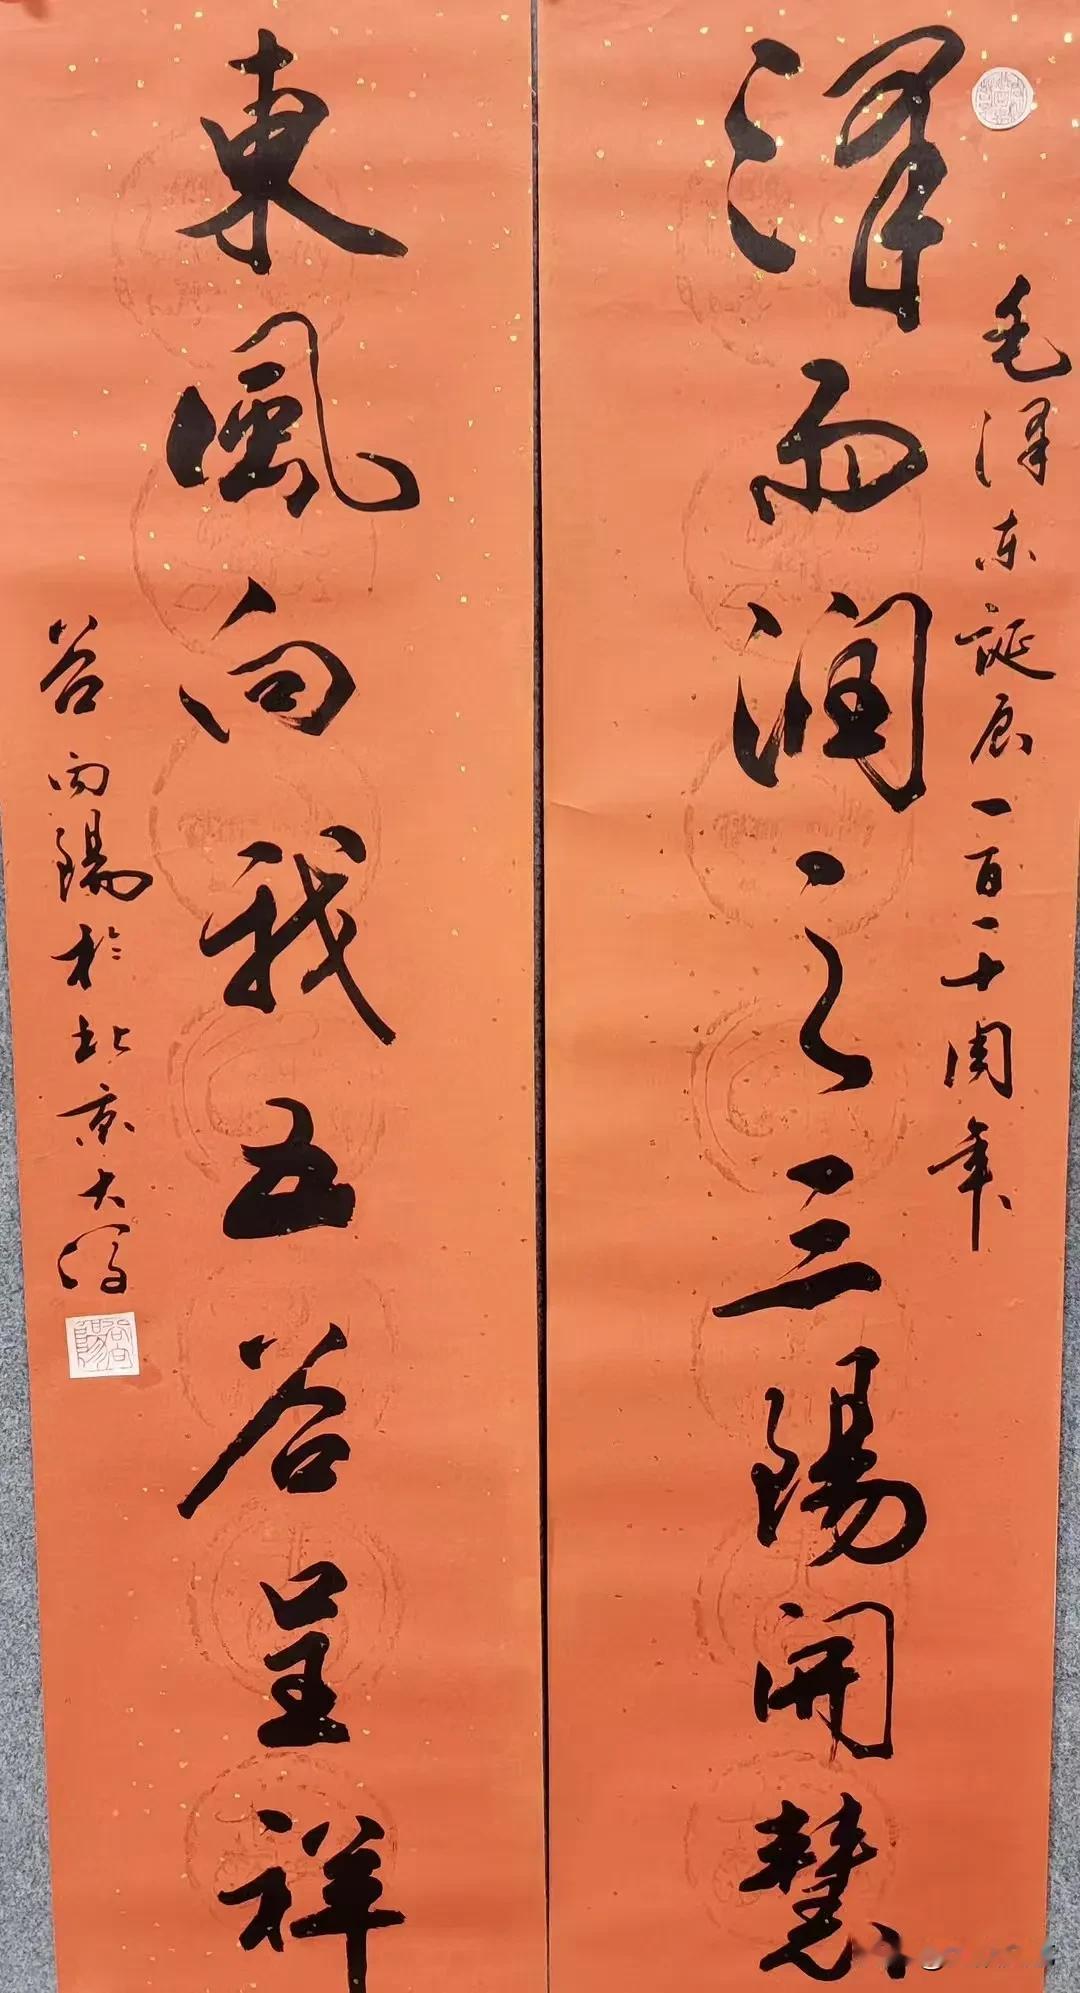 毛泽东誕辰一百一十周年
泽雨润之三陽開慧
東風向我五谷呈祥
谷向陽於北京大学